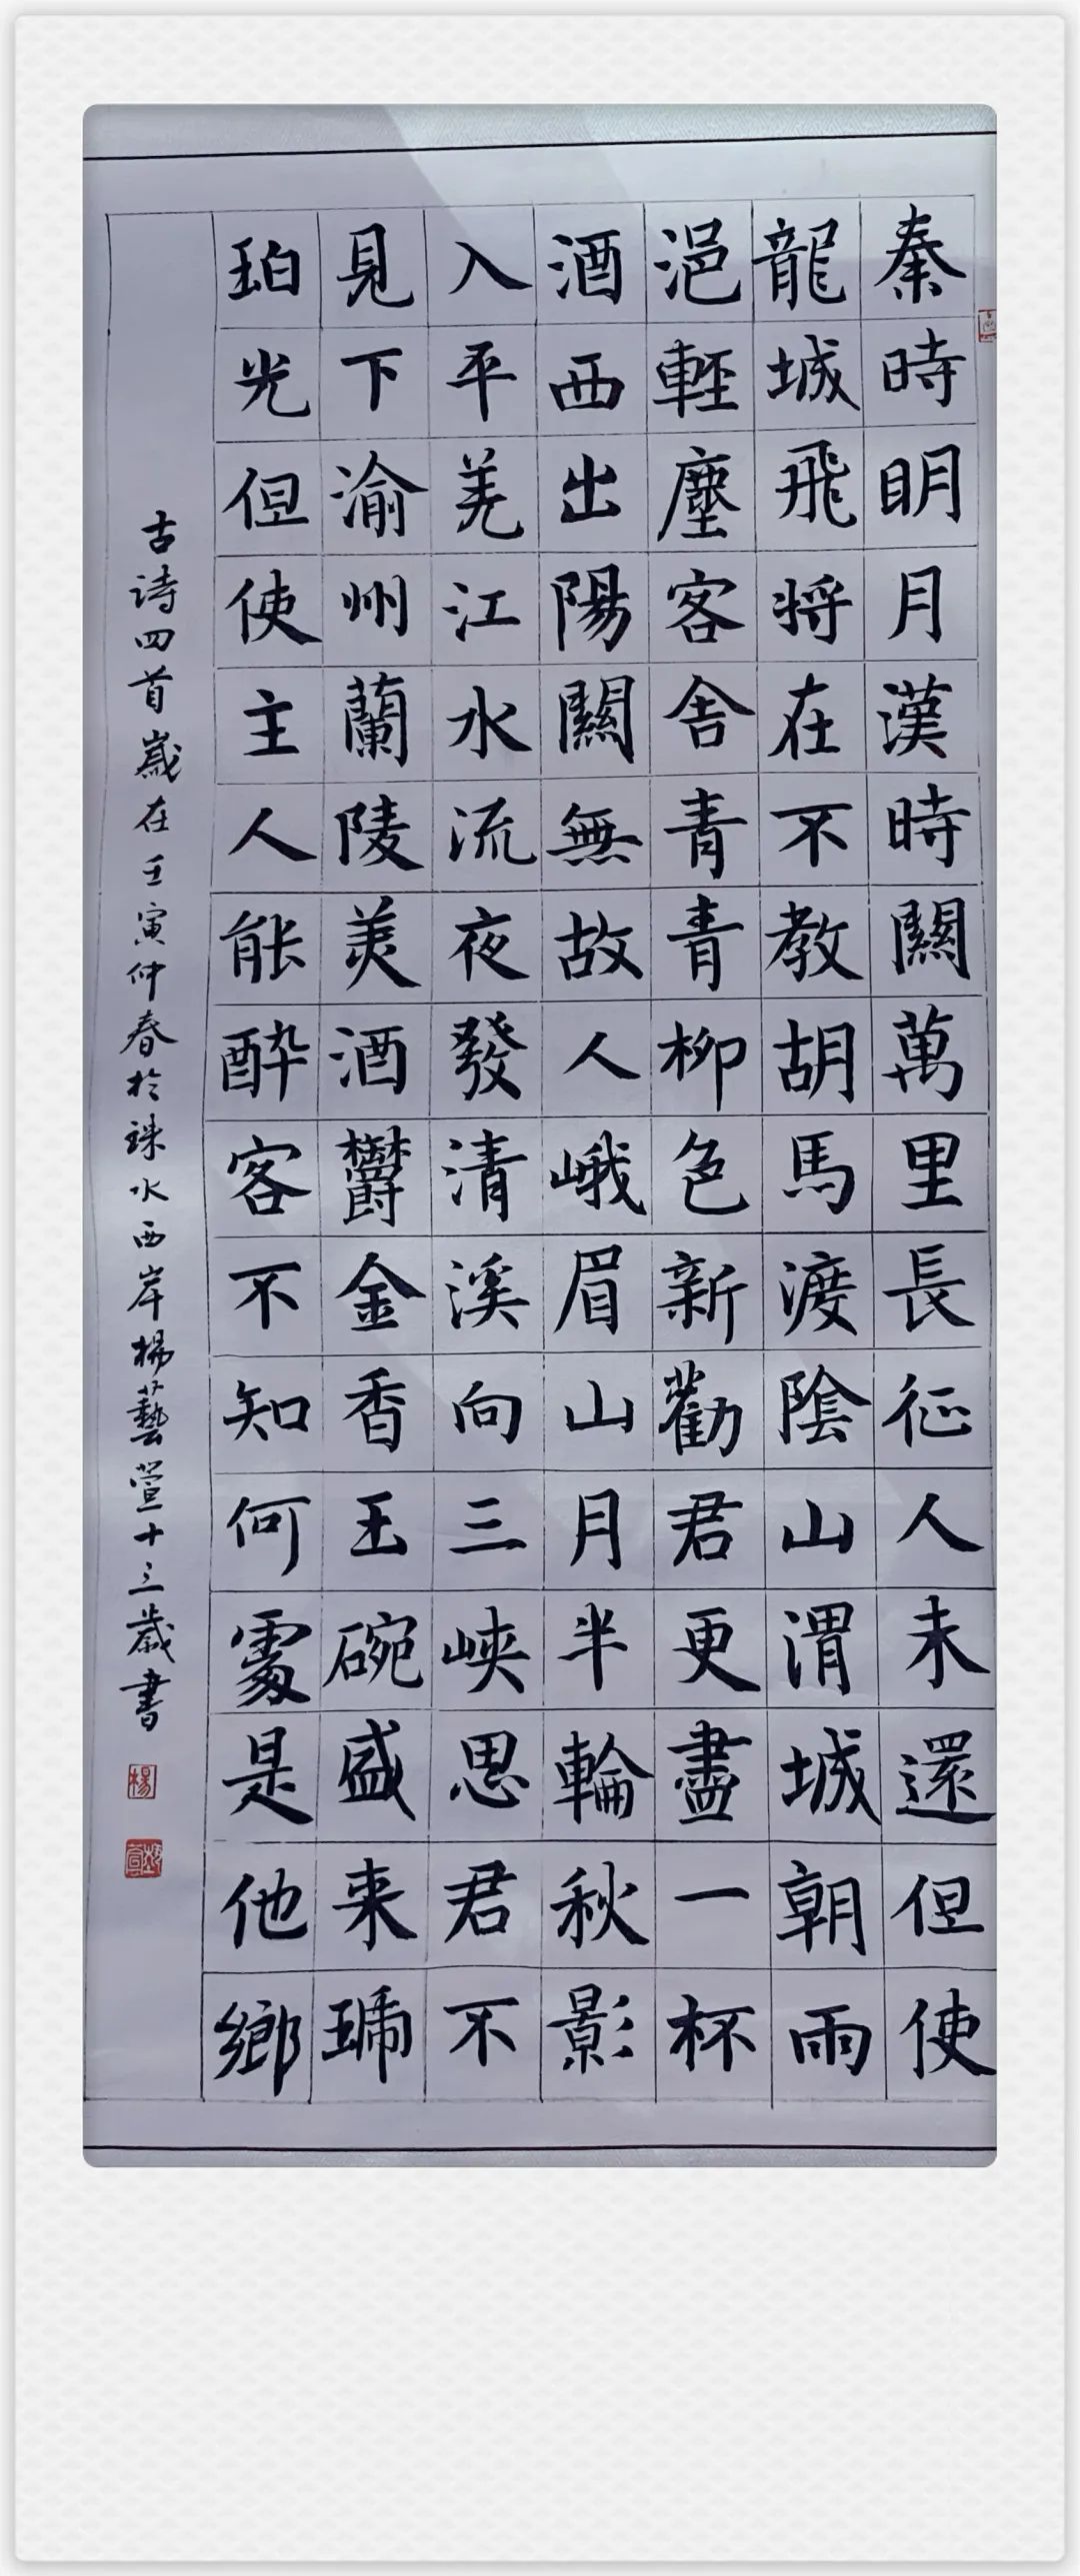 秦時明月漢時關萬里長征人未還但使
龍城飛将在不教胡馬渡陰山渭城朝雨
浥輕塵客舍青青柳色新勸君更盡一杯
酒西出陽關無故人峨眉山月半輪秋影
入平羌江水流夜發清溪向三峽思君不
見下渝州蘭陵美酒鬱金香玉碗盛来琥
珀光但使主人能醉客不知何處是他鄉
古诗四首歲在壬寅仲春於珠水西岸楊藝萱十三歲書
楊